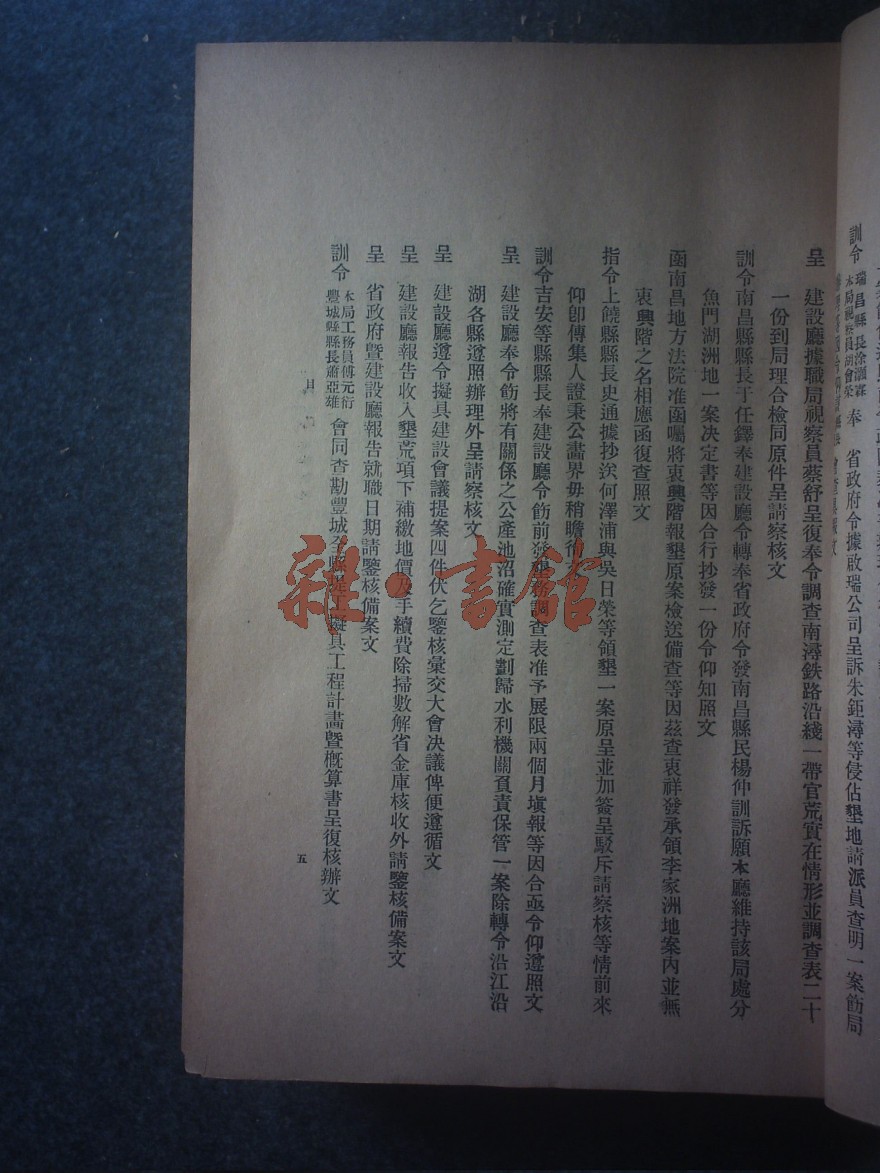 訓令 瑞昌縣長涂灝霖 奉 省政府令據啟瑞公司呈訴朱鉅潯等侵佔墾地請派員查明一案飭局
本局視察員胡會榮
呈 建設廳據職局視察員蔡舒呈復奉令調查南潯鉄路沿綫一帶官荒實在情形並調查表二十
一份到局理合檢同原件呈請察核文
訓令南昌縣縣長于任鐸奉建設廳令轉奉省政府令發南昌縣民楊仲訓訴願本廳維持該局處分
魚門湖洲地一案决定書等因合行抄發一份令仰知照文
函南昌地方法院准函囑將衷興階報墾原案檢送備查等因茲查衷祥發承領李家洲地案內並無
衷興階之名相應函復查照文
指令上饒縣縣長史通據抄送何澤浦與吳日榮等領墾一案原呈並加簽呈駁斥請察核等情前來
仰卽傳集人證秉公畫界毋稍瞻徇文
訓令吉安等縣縣長奉建設廳令飭前發墾務調查表准予展限兩個月塡報等因合亟令仰遵照文
呈 建設廳奉令飭將有關係之公產池沼確實測定劃歸水利機關負責保管一案除轉令沿江沿
湖各縣遵照辦理外呈請察核文
呈 建設廳遵令擬具建設會議提案四件伏乞鑒核彙交大會决議俾便遵循文
呈 建設廳報告收入墾荒項下補繳地價及手續費除掃數解省金庫核收外請鑒核備案文
呈 省政府暨建設廳報告就職日期請鑒核備案文
訓令 本局工務員傅元衍 會同查勘豐城全縣堤工擬具工程計畫暨概算書呈復核辦文
豐城縣縣長蕭亞雄
目
五
雜·書館